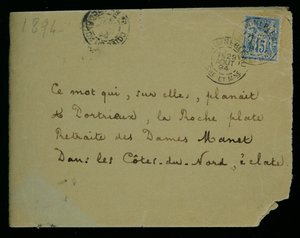 1894
15
Ce mot qui, sur elles, planait
à Portrieux, la Roche plate
Retraite des Dames Manet
Dans les Côtes-du-Nord, éclate